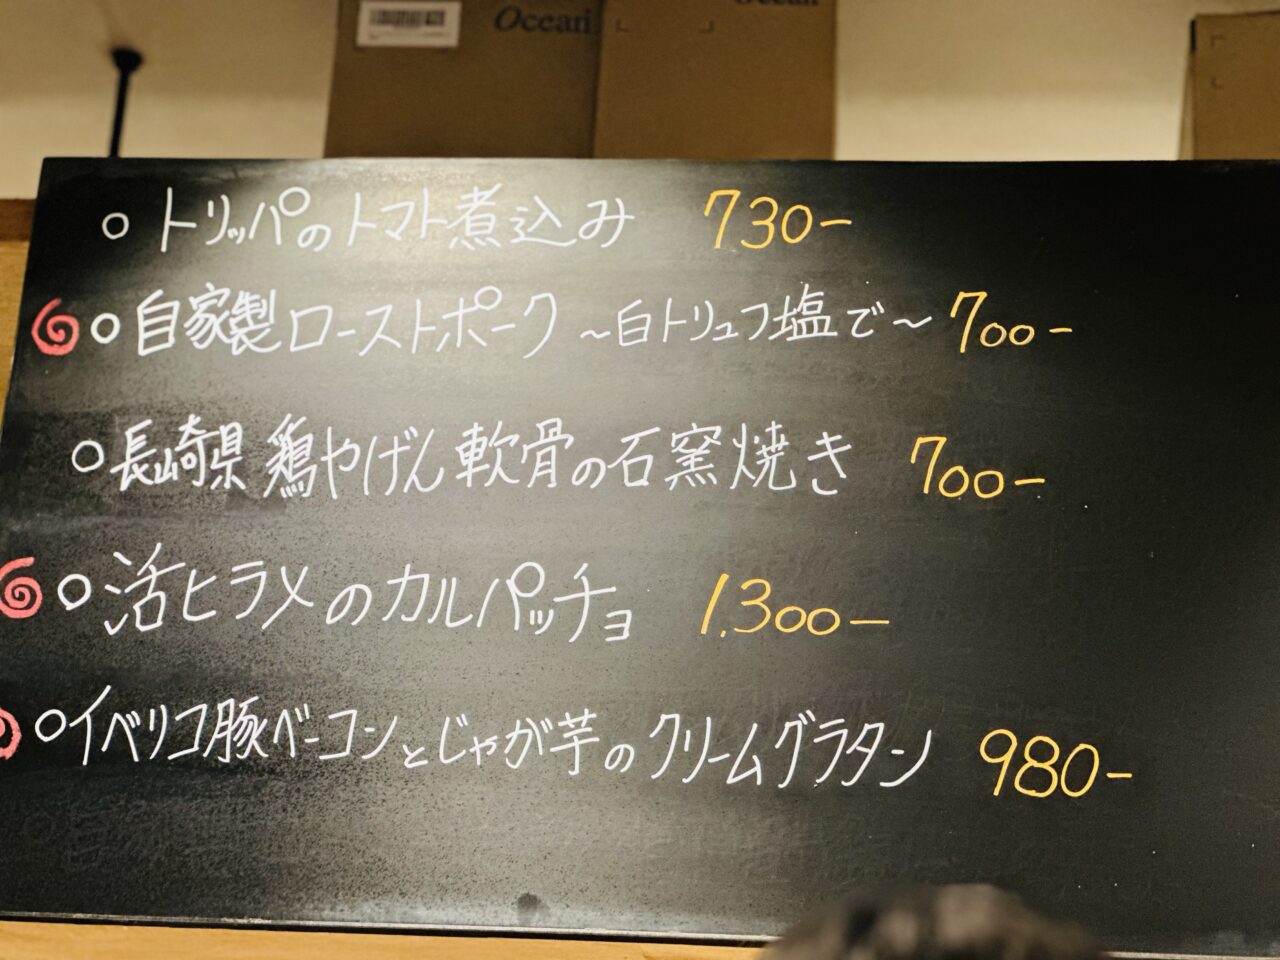 Ocean
Ocean
○ トリッパのトマト煮込み 730-
○ 自家製ローストポーク ~白トリュフ塩で~ 700-
○ 長崎県 鶏やげん軟骨の石窯焼き 700-
○ 活ヒラメのカルパッチョ 1,300-
○ イベリコ豚ベーコンとじゃが芋のクリームグラタン 980-